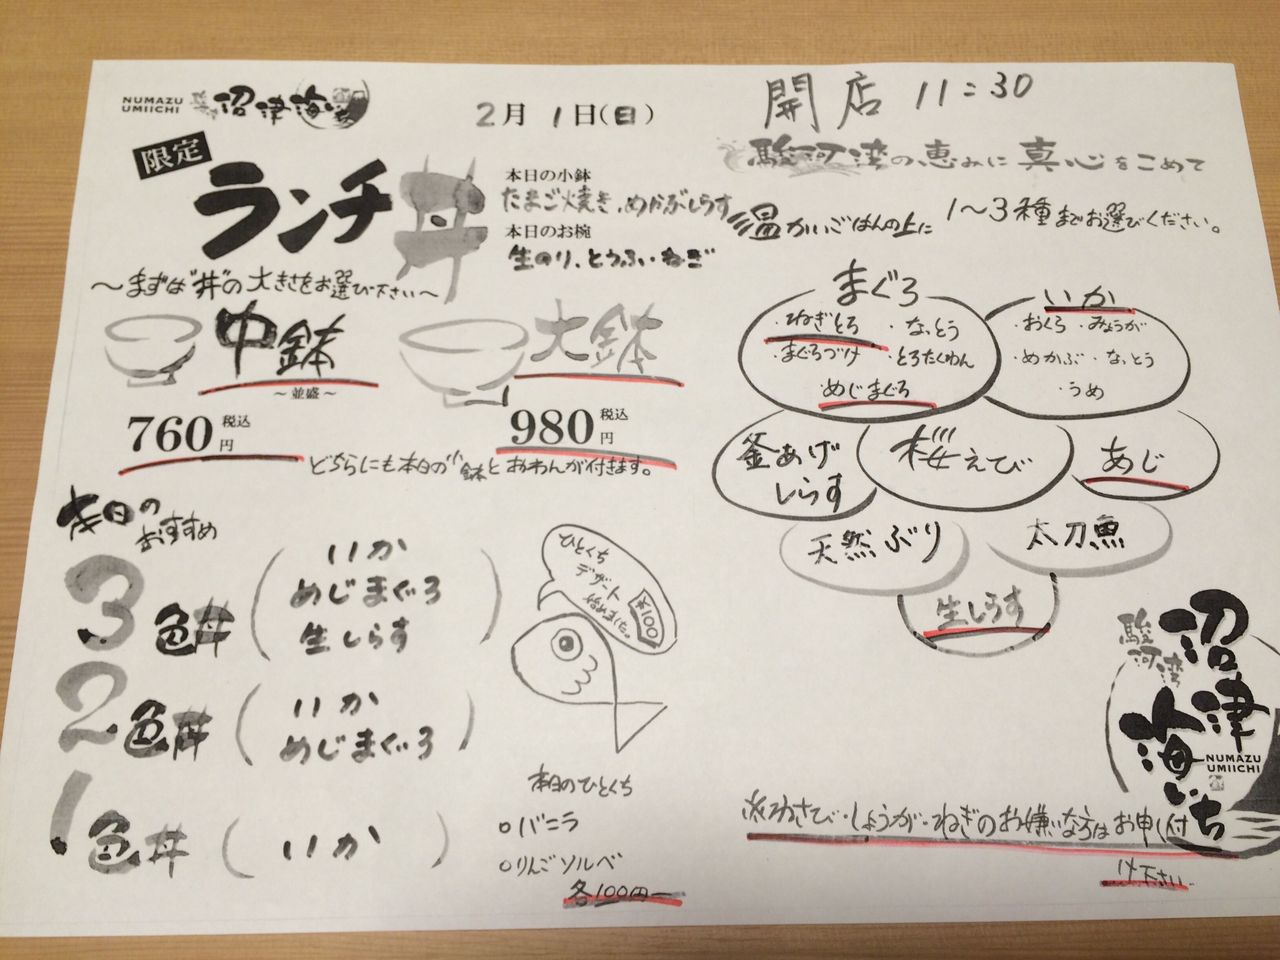 NUMAZU
UMIICHI
沼津海いち
2月 1日(日)
開店 11:30
限定
ランチ丼
本日の小鉢
たまご焼き、めかぶしらす
本日のお椀
生のり、とうふ、ねぎ
駿河湾の恵みに真心をこめて
温かいごはんの上に 1〜3種までお選びください。
〜まずは"丼"の大きさをお選び下さい〜
中鉢
〜並盛〜
760円 税込
大鉢
980円 税込
どちらにも本日の小鉢とおわんが付きます。
まぐろ
・ねぎとろ ・なっとう
・まぐろづけ ・とろたくわん
・めじまぐろ
いか
・おくら ・みょうが
・めかぶ ・なっとう
・うめ
釜あげ
しらす
桜えび
あじ
天然ぶり
太刀魚
生しらす
本日の
おすすめ
3色丼
いか
めじまぐろ
生しらす
2色丼
いか
めじまぐろ
1色丼
いか
ひとくち
デザート
始めました。
¥100
本日のひとくち
○バニラ
○りんごソルベ
各100円
駿河湾
沼津
海いち
NUMAZU
UMIICHI
※わさび・しょうが・ねぎのお嫌いな方はお申し付
け下さい